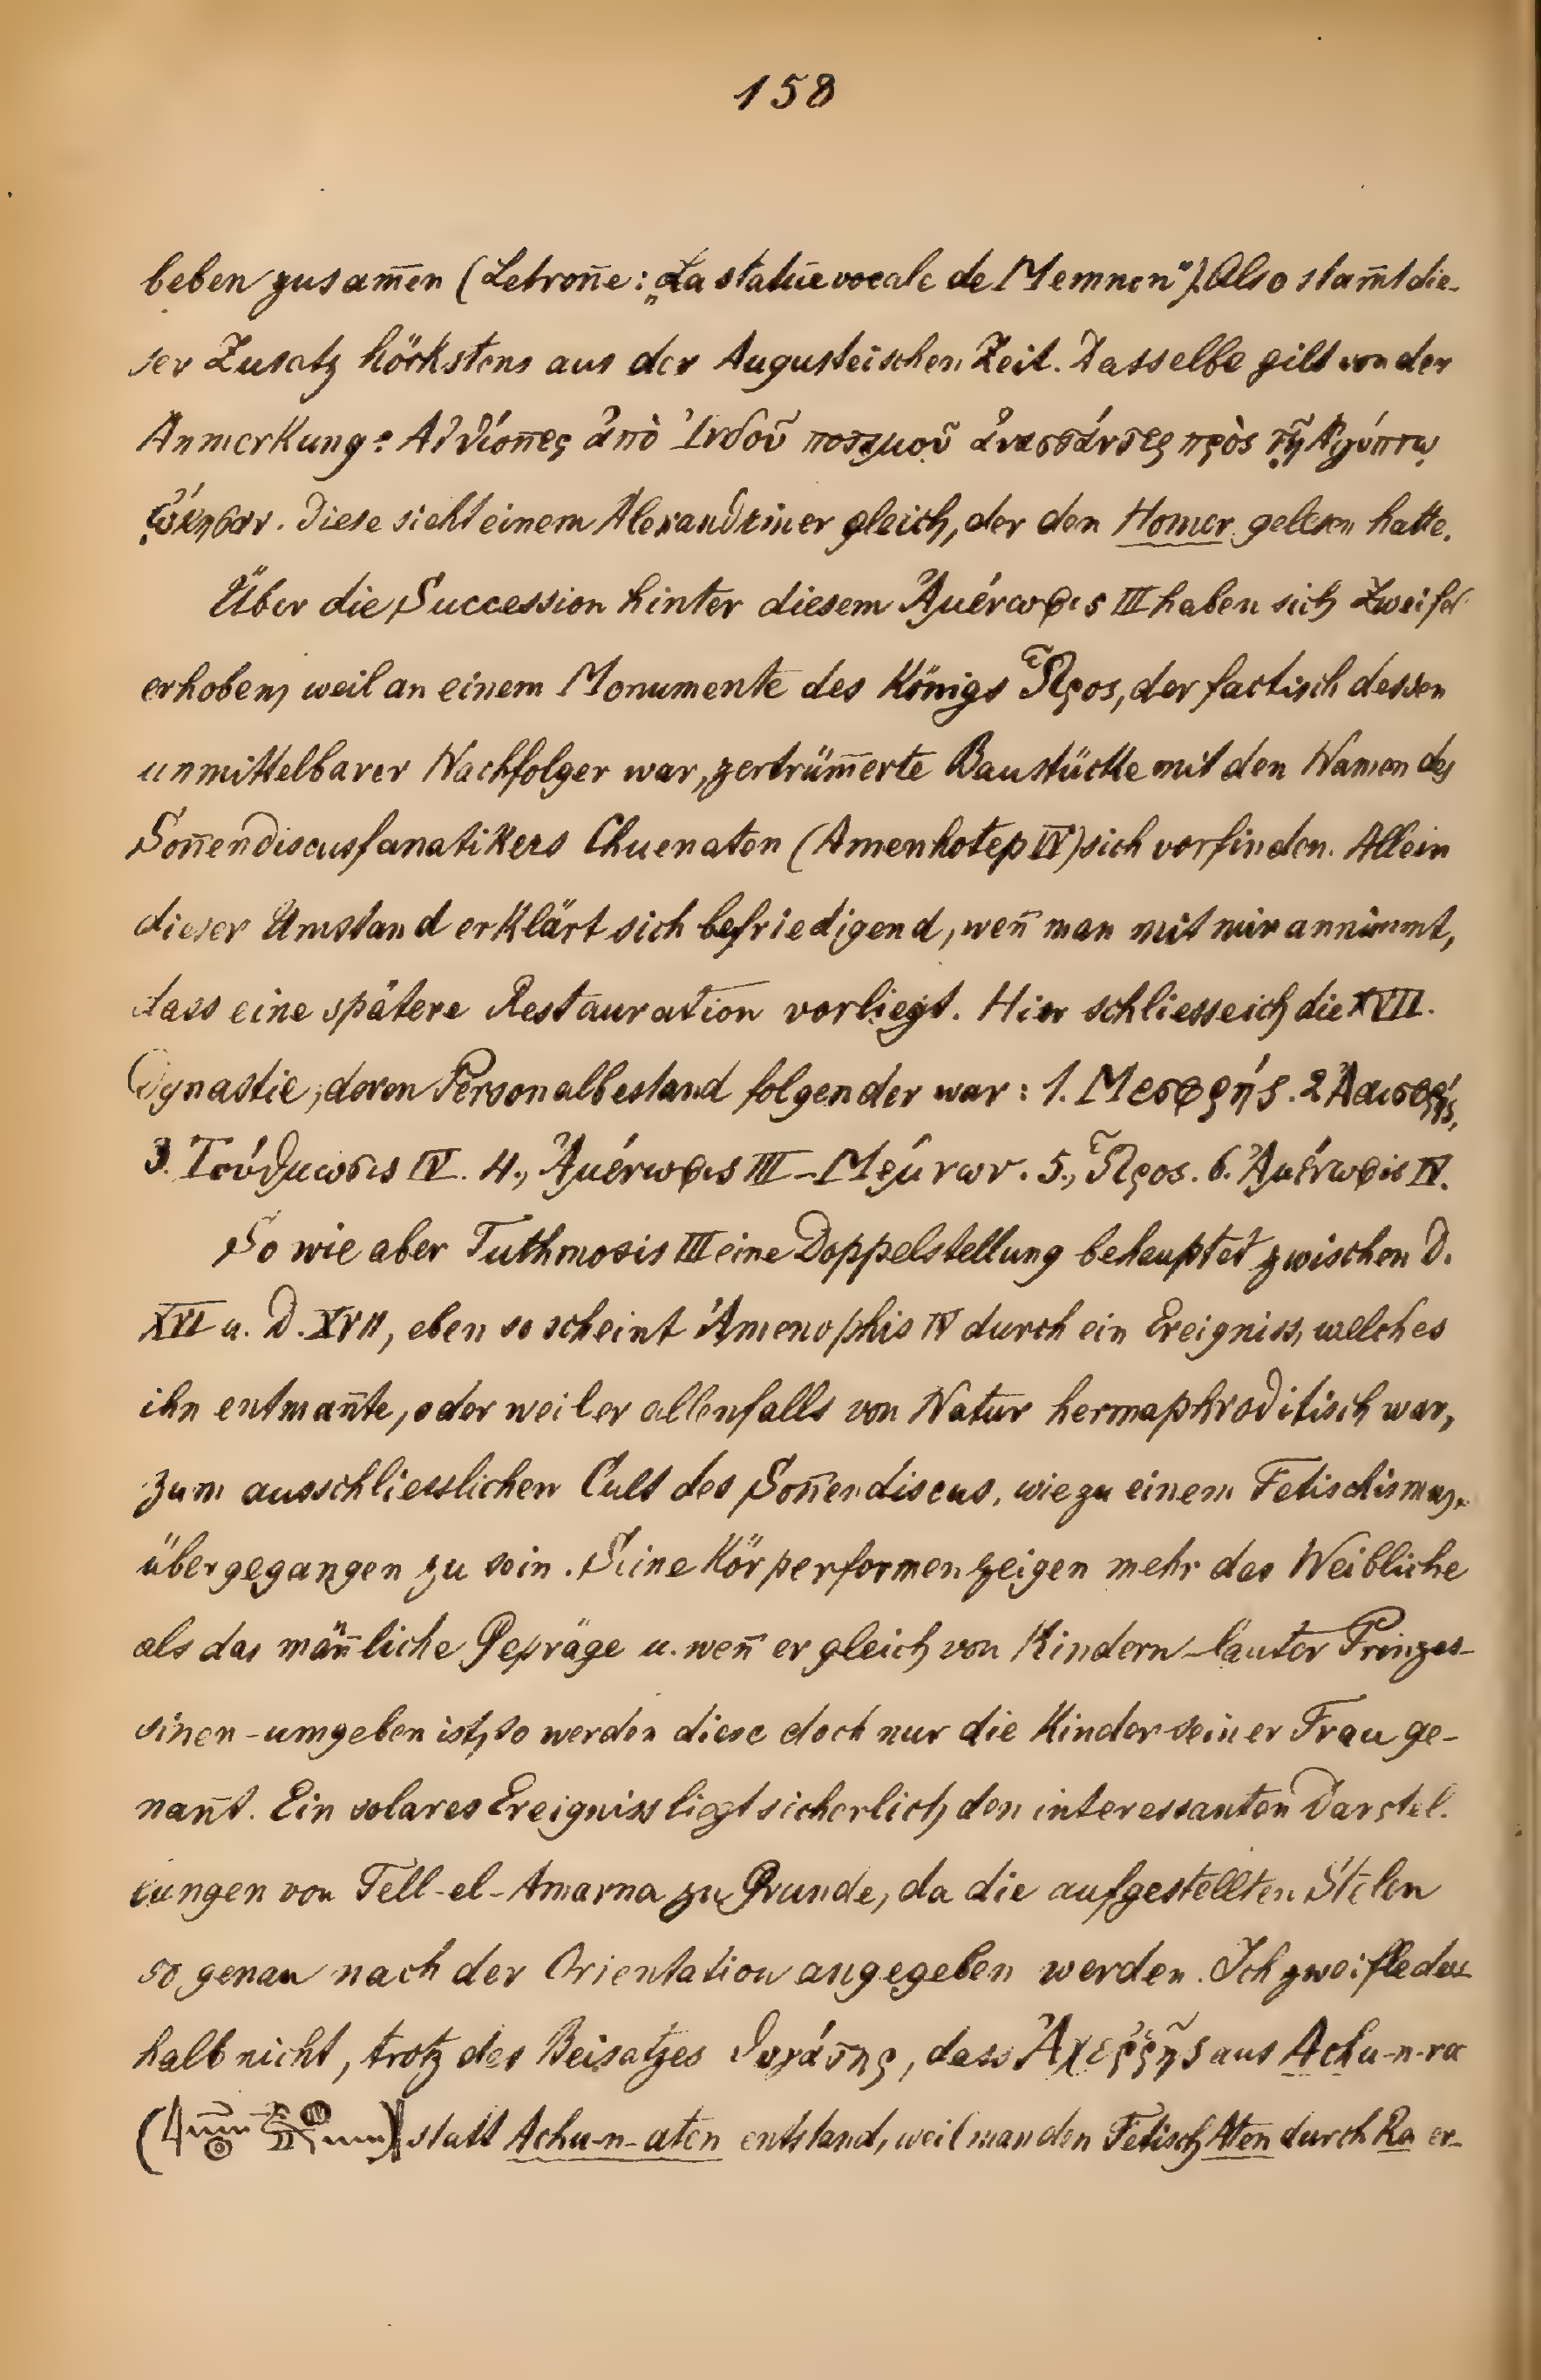 158
beben zusam̅en (Letron̅e: „La statue vocale de Memnon“). Also stam̅t die-
ser Zusatz höchstens aus der Augusteischen Zeit. Dasselbe gilt von der
Anmerkung: Αἰθίοπες ἀπὸ Ἰνδοῦ ποταμοῦ ἀναστάντες πρὸς τῇ Αἰγύπτῳ
ᾤκησαν. Diese sieht einem Alexandriner gleich, der den Homer gelesen hatte.
Über die Succession hinter diesem Ἀμένωφις III haben sich Zweifel
erhoben, weil an einem Monumente des Königs Ὧρος, der factisch dessen
unmittelbarer Nachfolger war, zertrüm̅erte Baustücke mit den Namen des
Son̅endiscusfanatikers Chuenaten (Amenhotep IV) sich vorfinden. Allein
dieser Umstand erklärt sich befriedigend, wen̅ man mit mir annimmt,
dass eine spätere Restauration vorliegt. Hier schliesse ich die XVII.
Dynastie, deren Personalbestand folgender war: 1. Μεσφρής. 2 Ἀμισφρής.
3. Τούθμωσις IV. 4., Ἀμένωφις III – Μέμνων. 5., Ὧρος. 6. Ἀμένωφις IV.
So wie aber Tuthmosis III eine Doppelstellung behauptet zwischen D.
XVI u. D. XVII, eben so scheint Amenophis IV durch ein Ereigniss, welches
ihn entman̅te, oder weil er allenfalls von Natur hermaphroditisch war,
zum ausschliesslichen Cult des Son̅endiscus, wie zu einem Fetischismus,
übergegangen zu sein. Seine Körperformen zeigen mehr das Weibliche
als das män̅liche Gepräge u. wen̅ er gleich von Kindern – lauter Prinzes-
sinen – umgeben ist, so werden diese doch nur die Kinder seiner Frau ge-
nan̅t. Ein solares Ereigniss liegt sicherlich den interessanten Darstel-
lungen von Tell-el-Amarna zu Grunde, da die aufgestellten Stelen
so genau nach der Orientation angegeben werden. Ich zweifle des-
halb nicht, trotz des Beisatzes θυγάτηρ, dass Ἀχερρῆς aus Achu-n-ra
( ) statt Achu-n-aten entstand, weil man den Fetisch Aten durch Ra er-